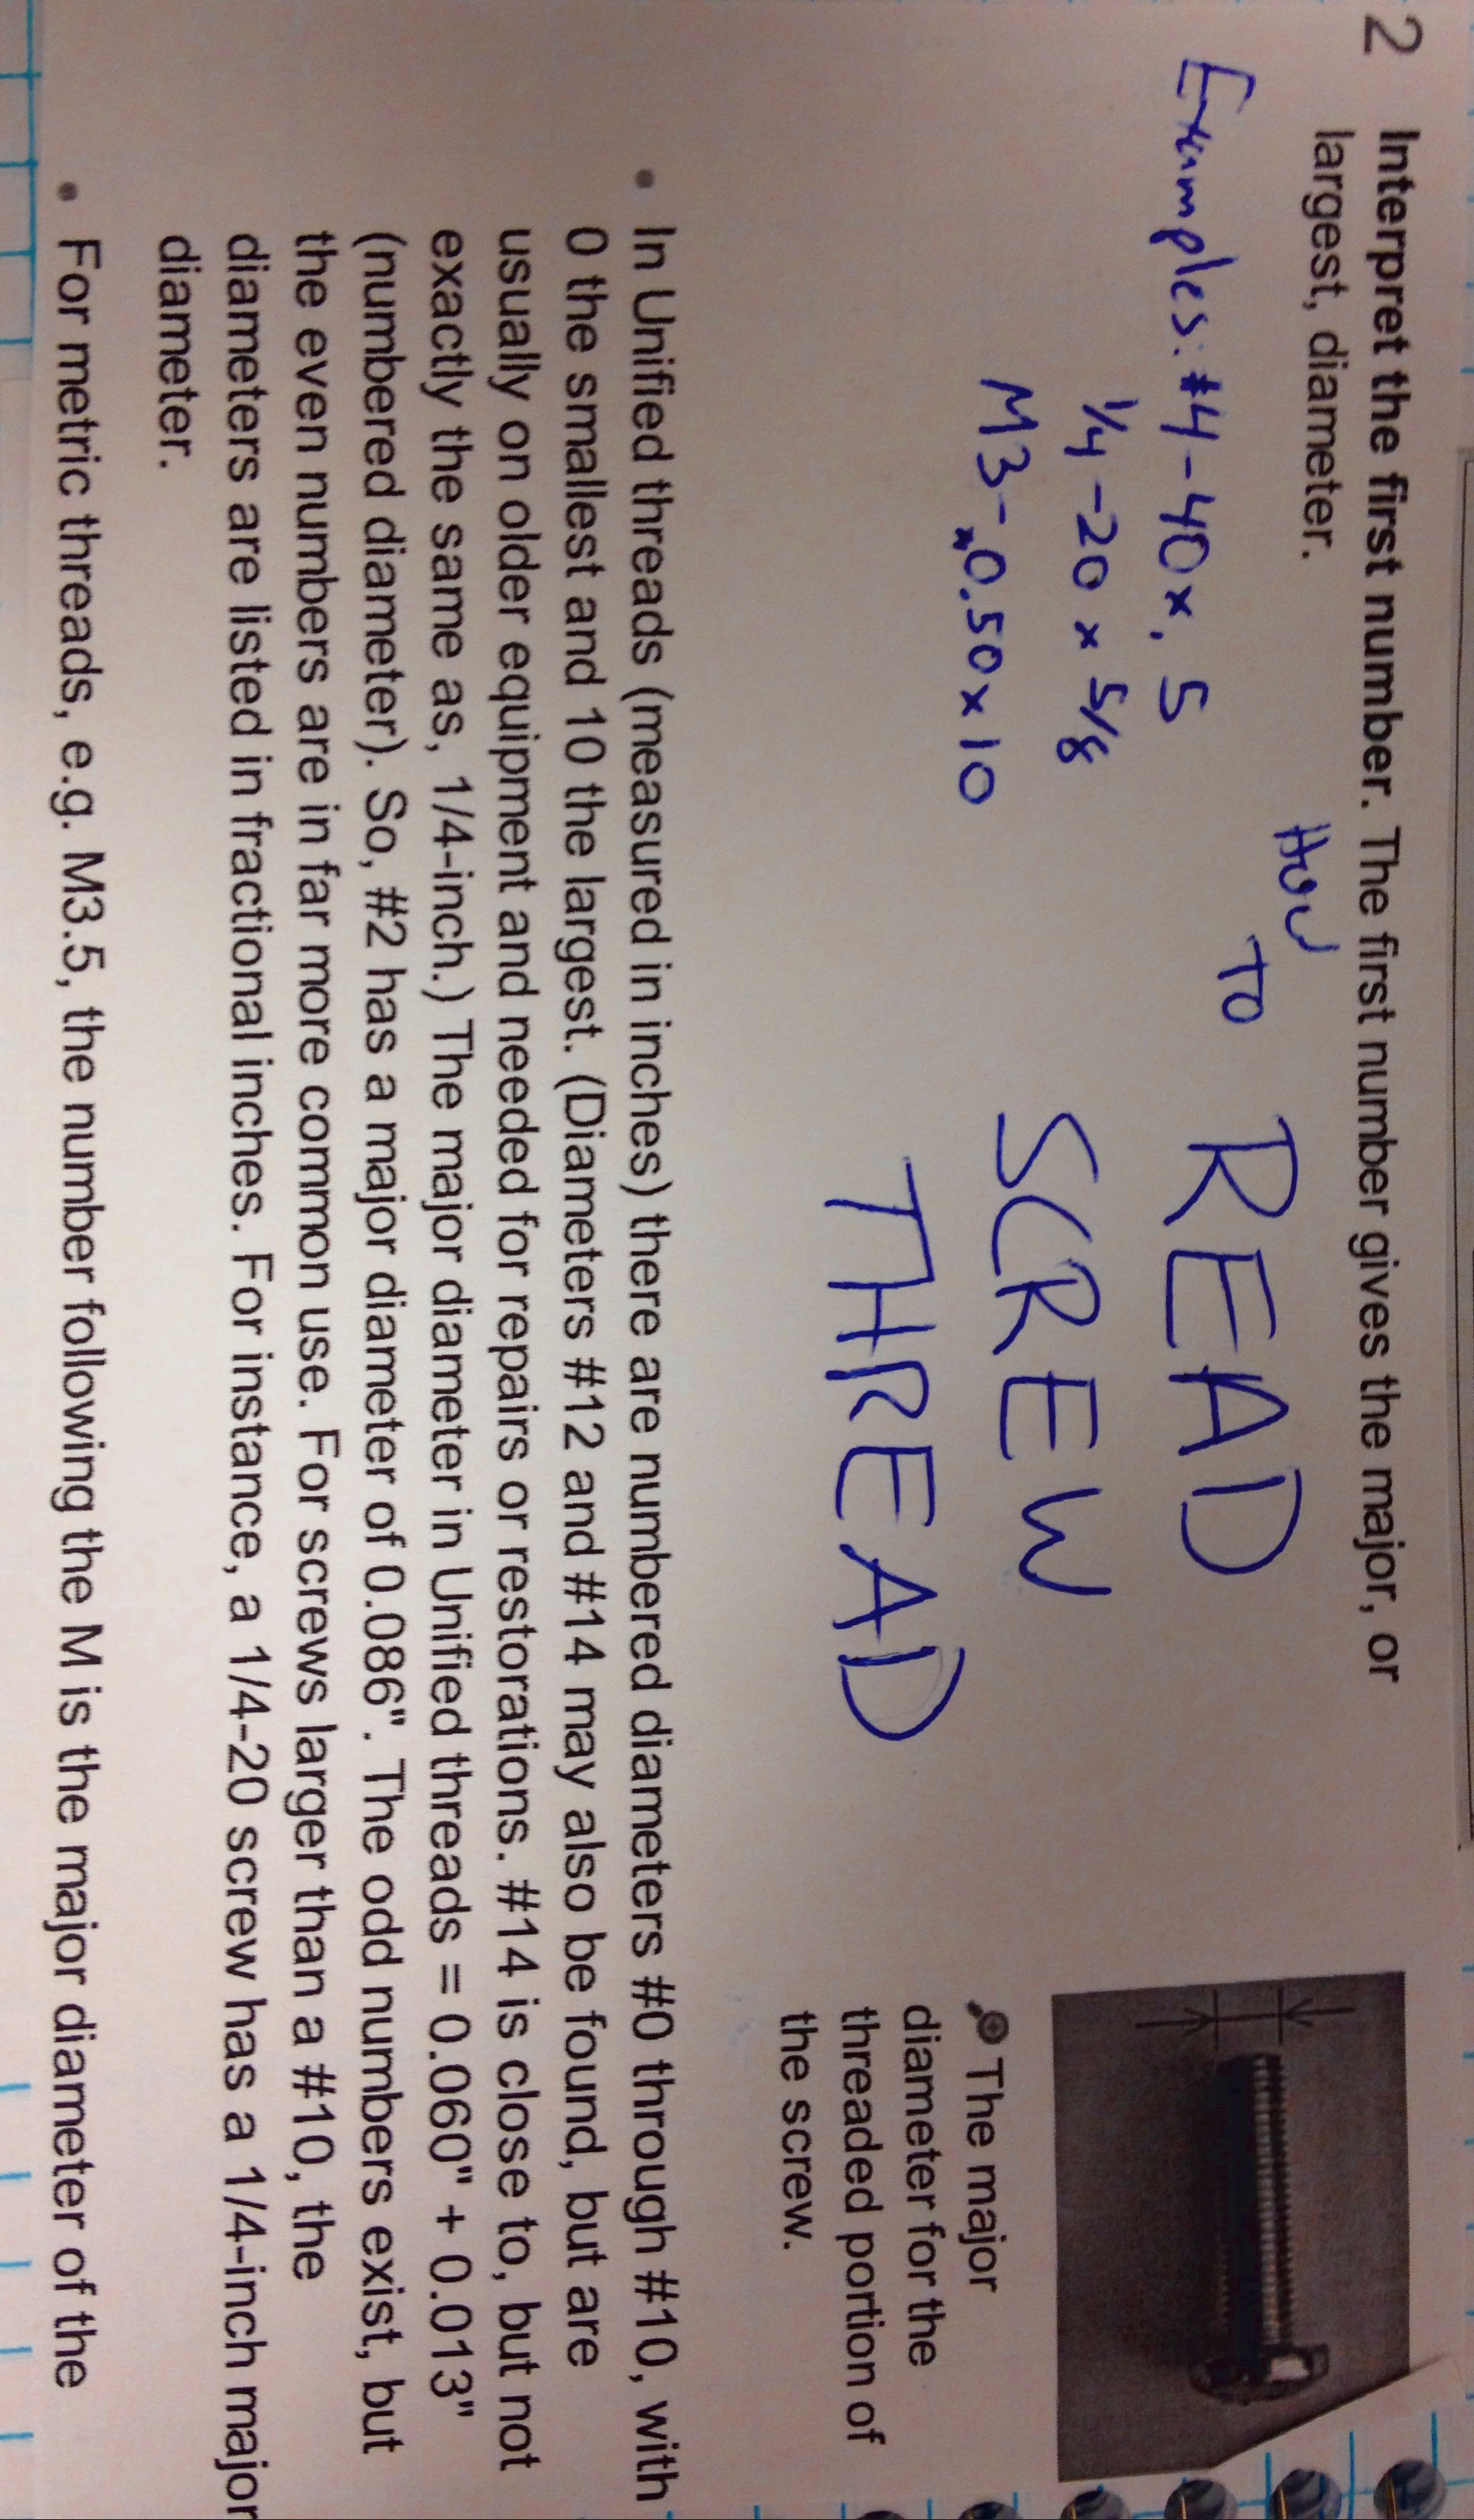 2 Interpret the first number. The first number gives the major, or
largest, diameter.
HOW
TO
READ
SCREW
THREAD
Examples: #4-40x.5
1/4-20 x 5/8
M3-0.50x10
The major
diameter for the
threaded portion of
the screw.
• In Unified threads (measured in inches) there are numbered diameters #0 through #10, with
0 the smallest and 10 the largest. (Diameters #12 and #14 may also be found, but are
usually on older equipment and needed for repairs or restorations. #14 is close to, but not
exactly the same as, 1/4-inch.) The major diameter in Unified threads = 0.060" + 0.013"
(numbered diameter). So, #2 has a major diameter of 0.086". The odd numbers exist, but
the even numbers are in far more common use. For screws larger than a #10, the
diameters are listed in fractional inches. For instance, a 1/4-20 screw has a 1/4-inch major
diameter.
• For metric threads, e.g. M3.5, the number following the M is the major diameter of the